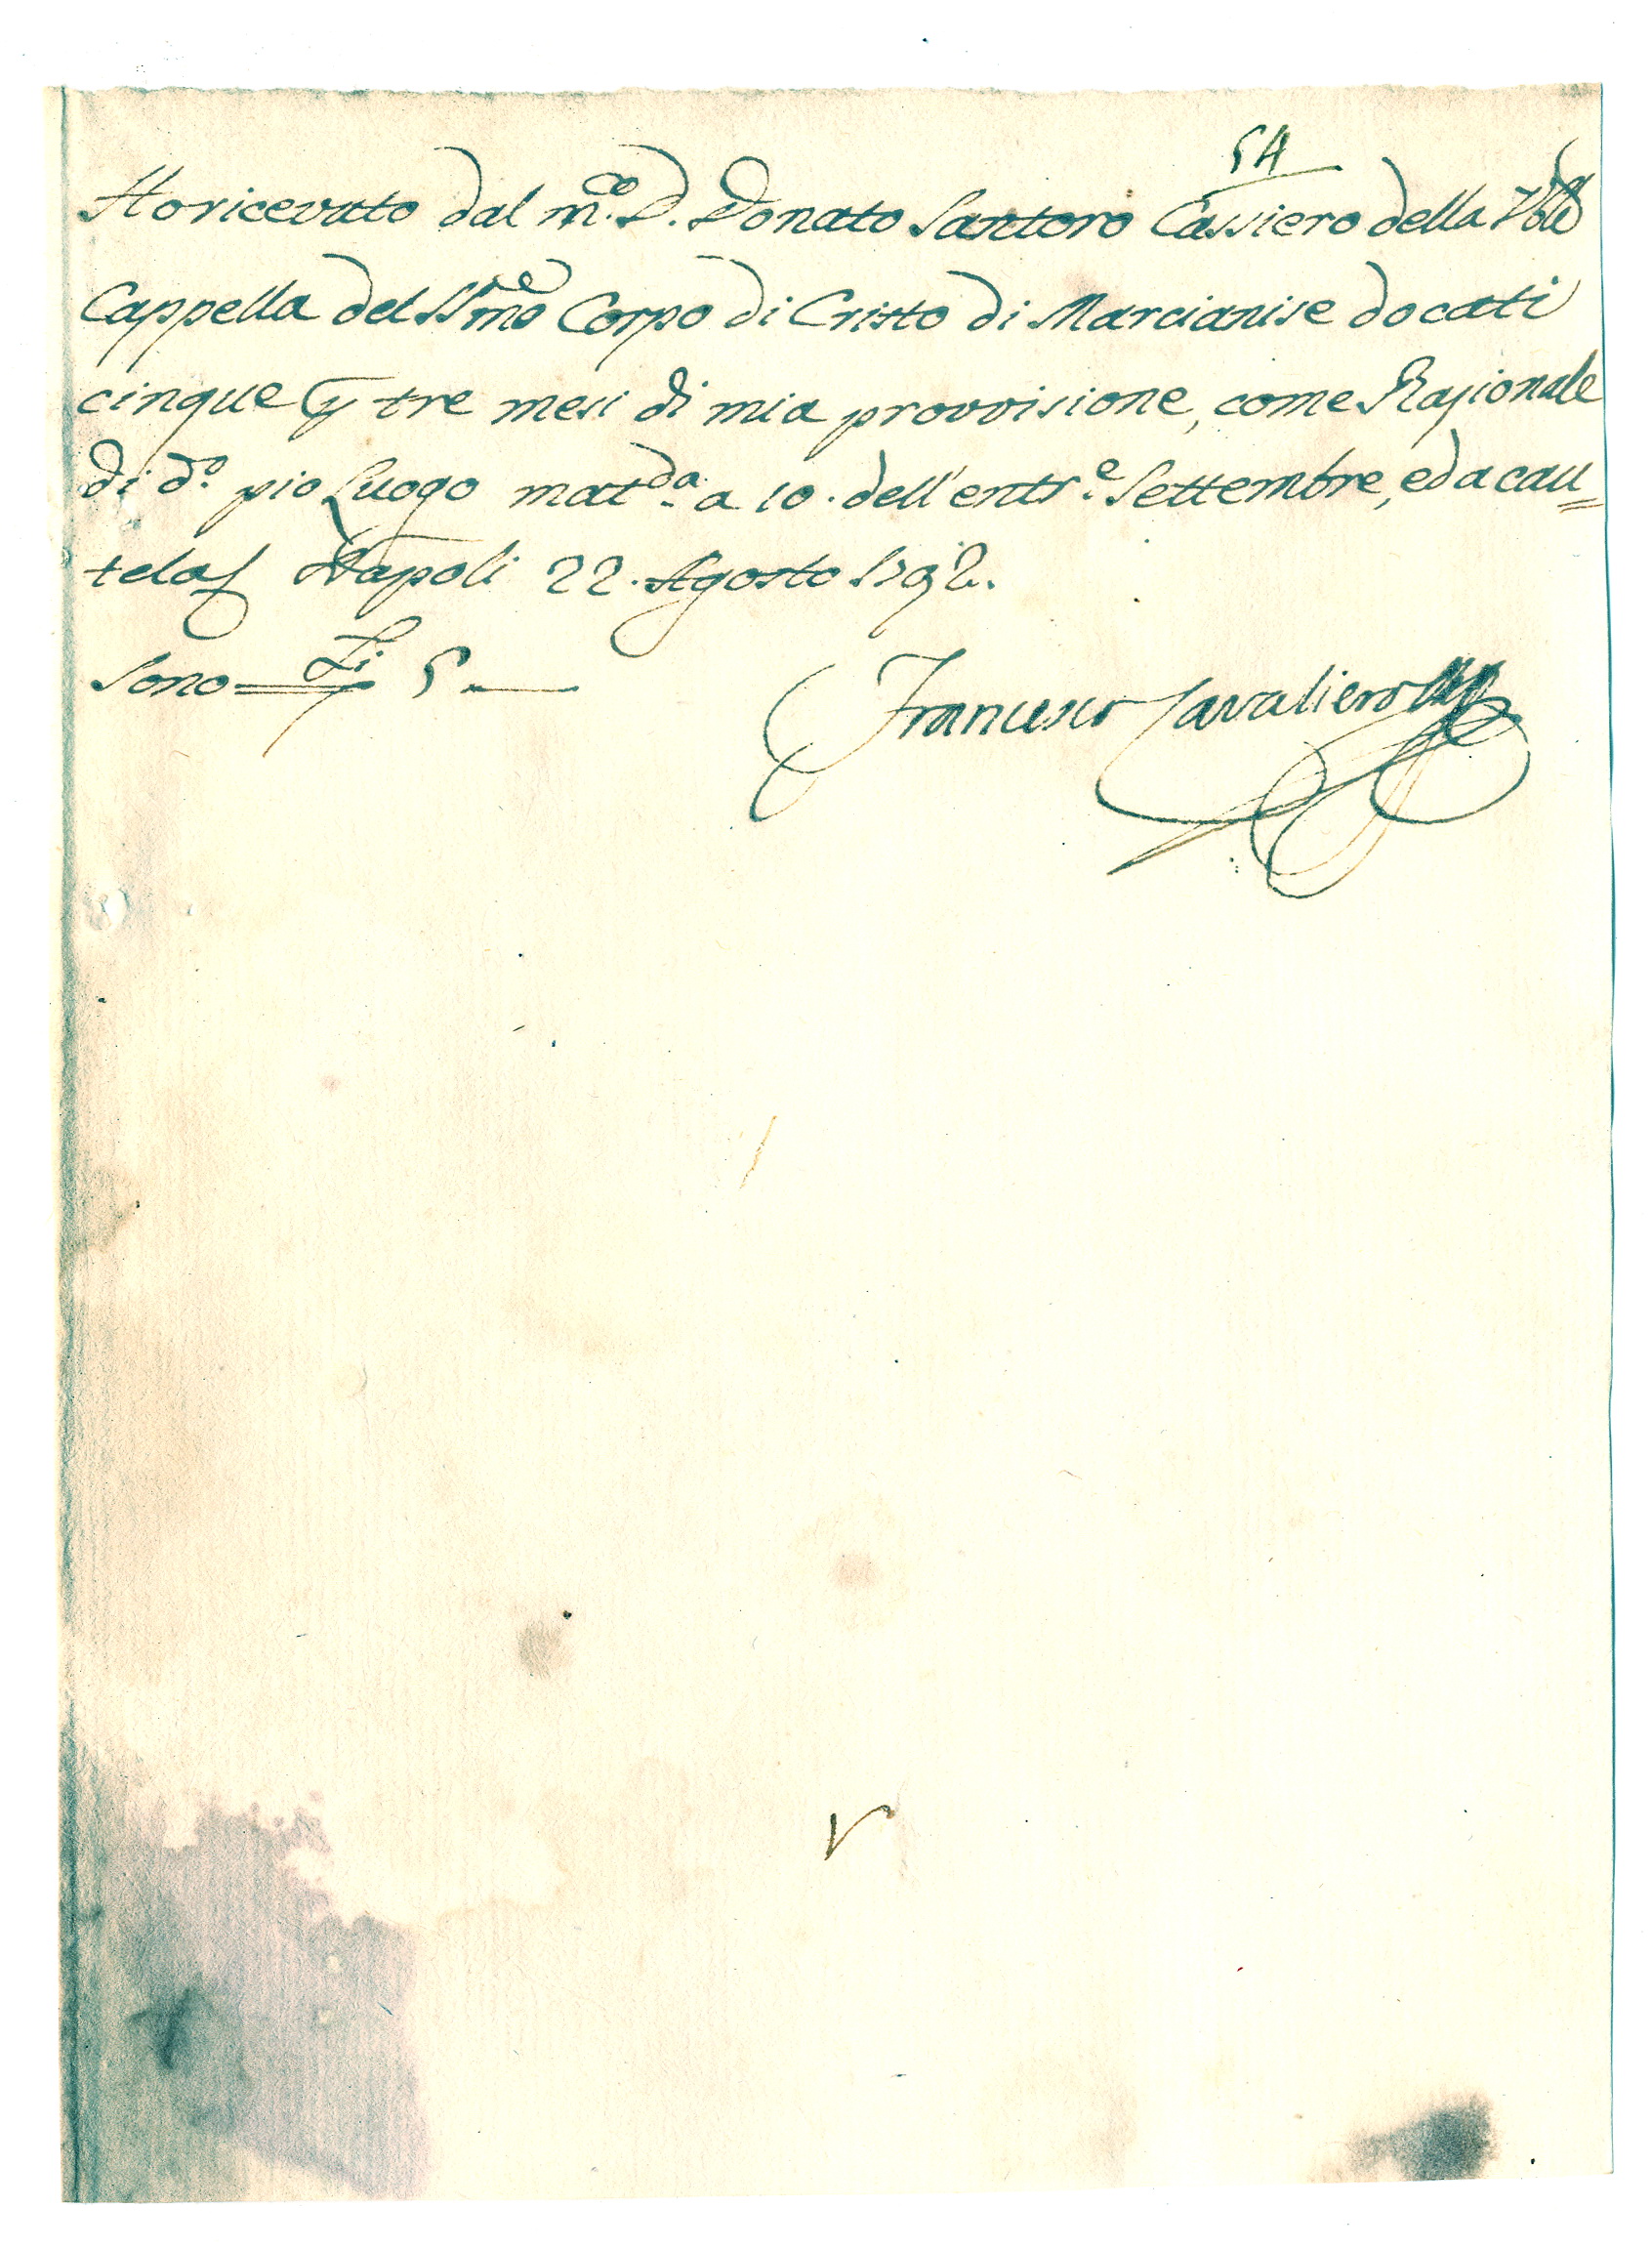 54
Ho ricevuto dal m.co D. Donato Santoro Cassiero della V.ble
Cappella del SSmo Corpo di Cristo di Marcianise docati
cinque p tre mesi di mia provvisione, come Razionale
di d.o pio Luogo mat.da a 10. dell'entr.e Settembre, ed a cau=
tela Napoli 22. Agosto 1792.
Sono 5
Francesco Cavaliero